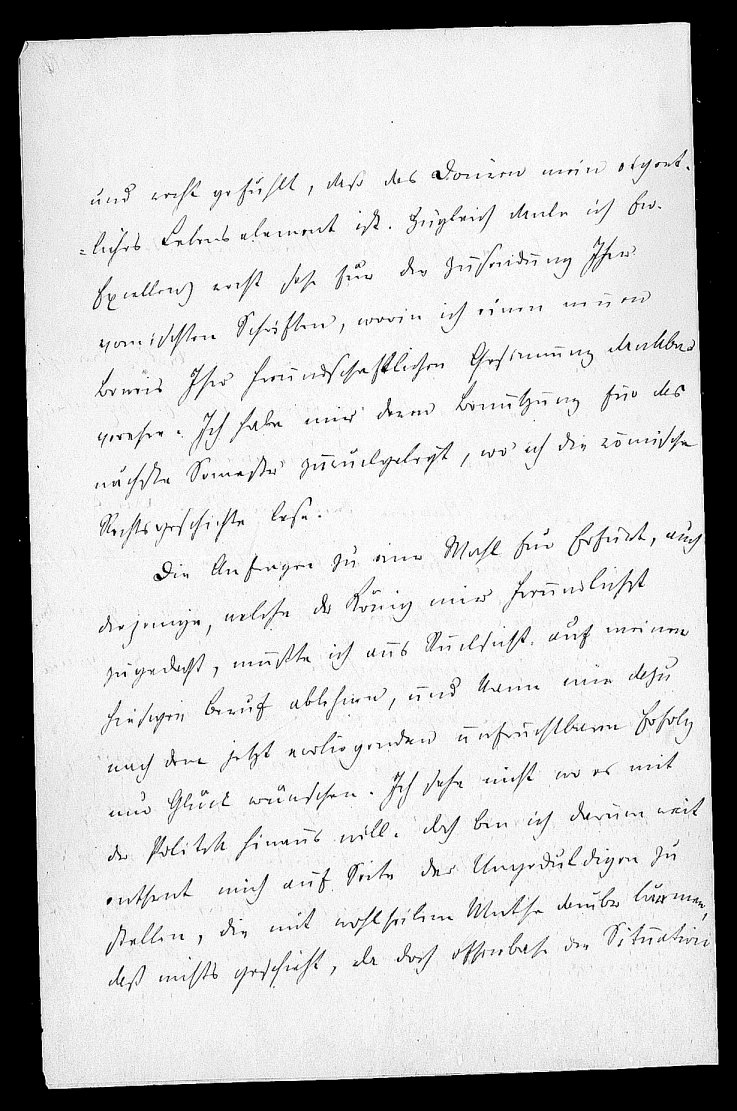 und recht gefühlt, daß das Dociren mein eigent-
=liches Lebenselement ist. Zugleich danke ich Ew.
Excellenz recht sehr für die Zusendung Ihrer
vermischten Schriften, worin ich einen neuen
Beweis Ihrer freundschaftlichen Gesinnung dankbar
verehre. Ich habe mir deren Benutzung für das
nächste Semester zurückgelegt, wo ich die römische
Rechtsgeschichte lese.
Die Anfragen zu einer Wahl für Erfurt, auch
diejenige, welche der König mir freundlichst
zugedacht, mußte ich aus Rücksicht auf meinen
hiesigen Beruf ablehnen, und kann mir dazu
nach dem jetzt vorliegenden unfruchtbaren Erfolg
nur Glück wünschen. Ich sehe nicht wo es mit
der Politik hinaus will. doch bin ich darum weit
entfernt mich auf Seite der Ungeduldigen zu
stellen, die mit wohlfeilem Muthe darüber lärmen,
daß nichts geschieht, da doch offenbar die Situation